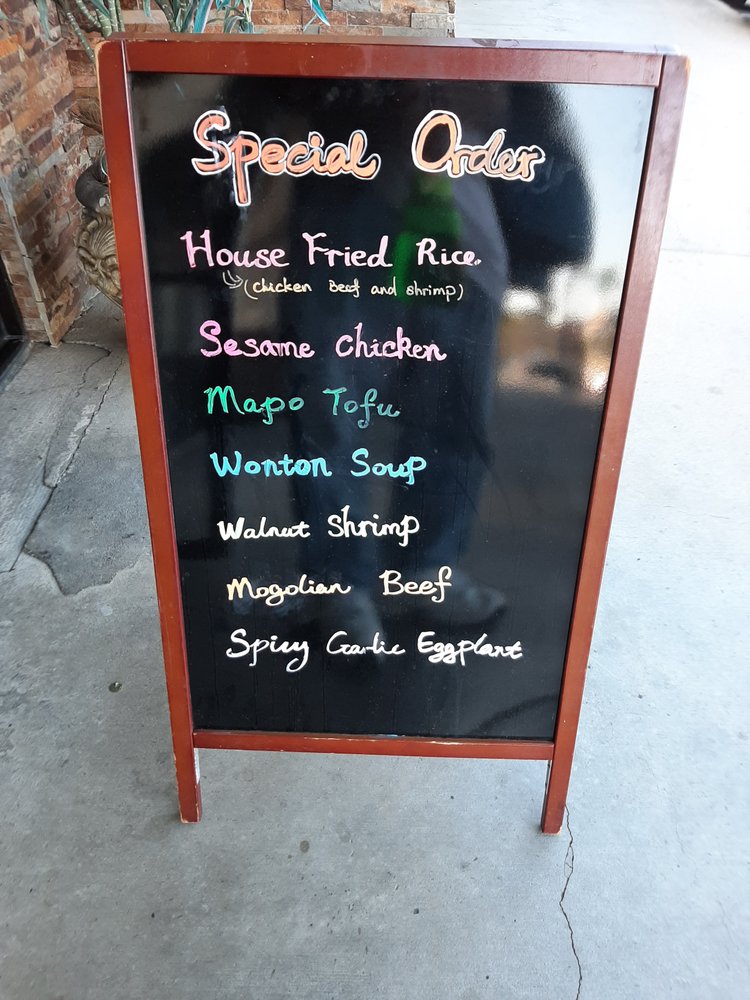 Special Order
House Fried Rice.
(chicken Beef and shrimp)
Sesame chicken
Mapo Tofu
Wonton Soup
Walnut Shrimp
Mogolian Beef
Spicy Garlic Eggplant